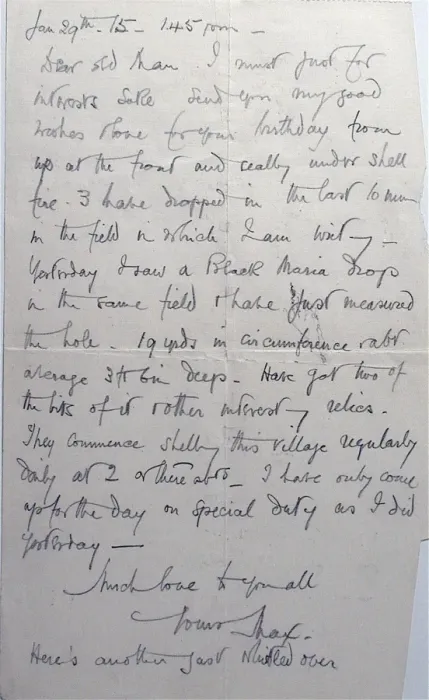 Jan 29th - 15 - 1.45 pm -
Dear old Man. I must just for
interests sake send you my good
wishes above for your birthday from
up at the front and really under shell
fire. 3 have dropped in the last 10 min
in the field in which I am writing -
Yesterday I saw a Black Maria drop
in the same field & have just measured
the hole - 19 yds in circumference & abt
average 3ft 6in deep - Have got two of
the bits of it rather interesting relics -
They commence shelling this village regularly
daily at 2 or there abts - I have only come
up for the day on special duty as I did
yesterday -
Much love to you all
Yours Max -
Here's another just whistled over